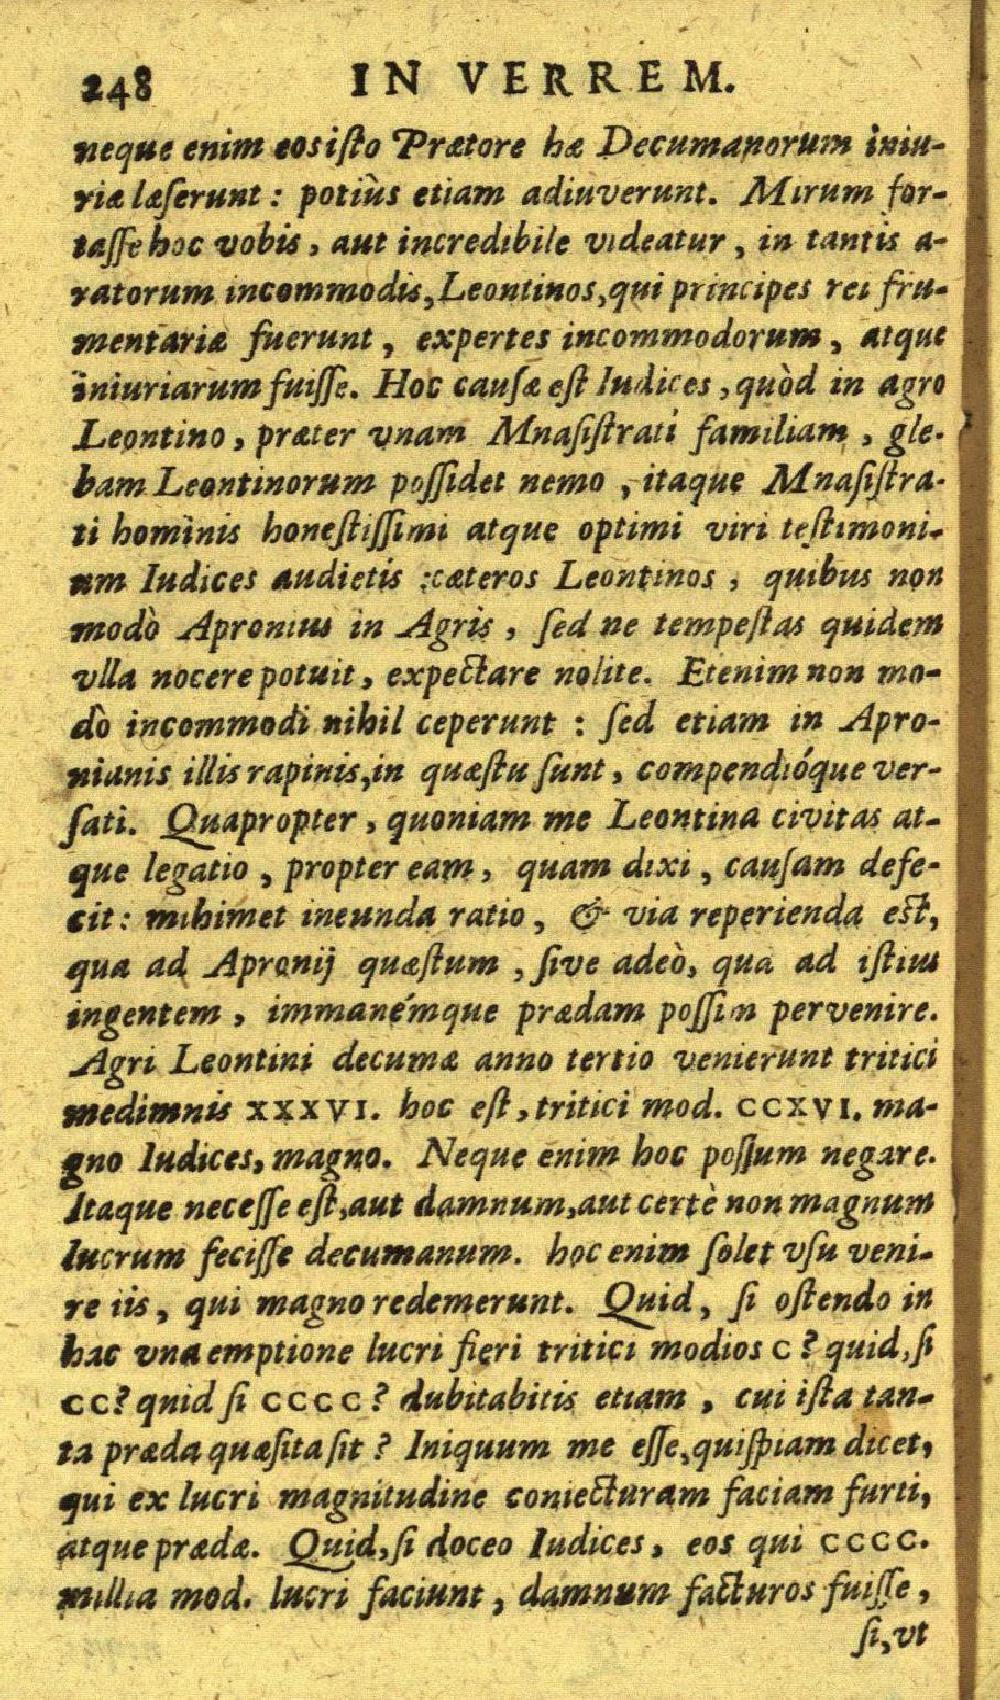 248 IN VERREM.
neque enim eos iſto Prætore hæ Decumanorum iniu-
riæ læſerunt : potiùs etiam adiuverunt. Mirum for-
taſſe hoc vobis, aut incredibile videatur, in tantis a-
ratorum incommodis, Leontinos, qui principes rei fru-
mentariæ fuerunt, expertes incommodorum, atque
iniuriarum fuiſſe. Hoc cauſæ eſt Iudices, quòd in agro
Leontino, præter vnam Mnaſiſtrati familiam, gle-
bam Leontinorum poſſidet nemo, itaque Mnaſiſtra-
ti hominis honeſtiſſimi atque optimi viri teſtimoni-
um Iudices audietis : cæteros Leontinos, quibus non
modò Apronius in Agris, ſed ne tempeſtas quidem
vlla nocere potuit, expectare nolite. Etenim non mo-
dò incommodi nihil ceperunt : ſed etiam in Apro-
nianis illis rapinis, in quæſtu ſunt, compendióque ver-
ſati. Quapropter, quoniam me Leontina civitas at-
que legatio, propter eam, quam dixi, cauſam defe-
cit: mihimet ineunda ratio, & via reperienda eſt,
qua ad Apronij quæſtum, ſive adeò, qua ad iſtius
ingentem, immanémque prædam poſſim pervenire.
Agri Leontini decumæ anno tertio venierunt tritici
medimnis XXXVI. hoc eſt, tritici mod. CCXVI. ma-
gno Iudices, magno. Neque enim hoc poſſum negare.
Itaque neceſſe eſt, aut damnum, aut certè non magnum
lucrum feciſſe decumanum. hoc enim ſolet vſu veni-
re iis, qui magno redemerunt. Quid, ſi oſtendo in
hac vna emptione lucri fieri tritici modios C? quid, ſi
CC? quid ſi CCCC? dubitabitis etiam, cui iſta tan-
ta præda quæſita ſit? Iniquum me eſſe, quiſpiam dicet,
qui ex lucri magnitudine coniecturam faciam furti,
atque prædæ. Quid, ſi doceo Iudices, eos qui CCCC.
millia mod. lucri faciunt, damnum facturos fuiſſe,
ſi, vt